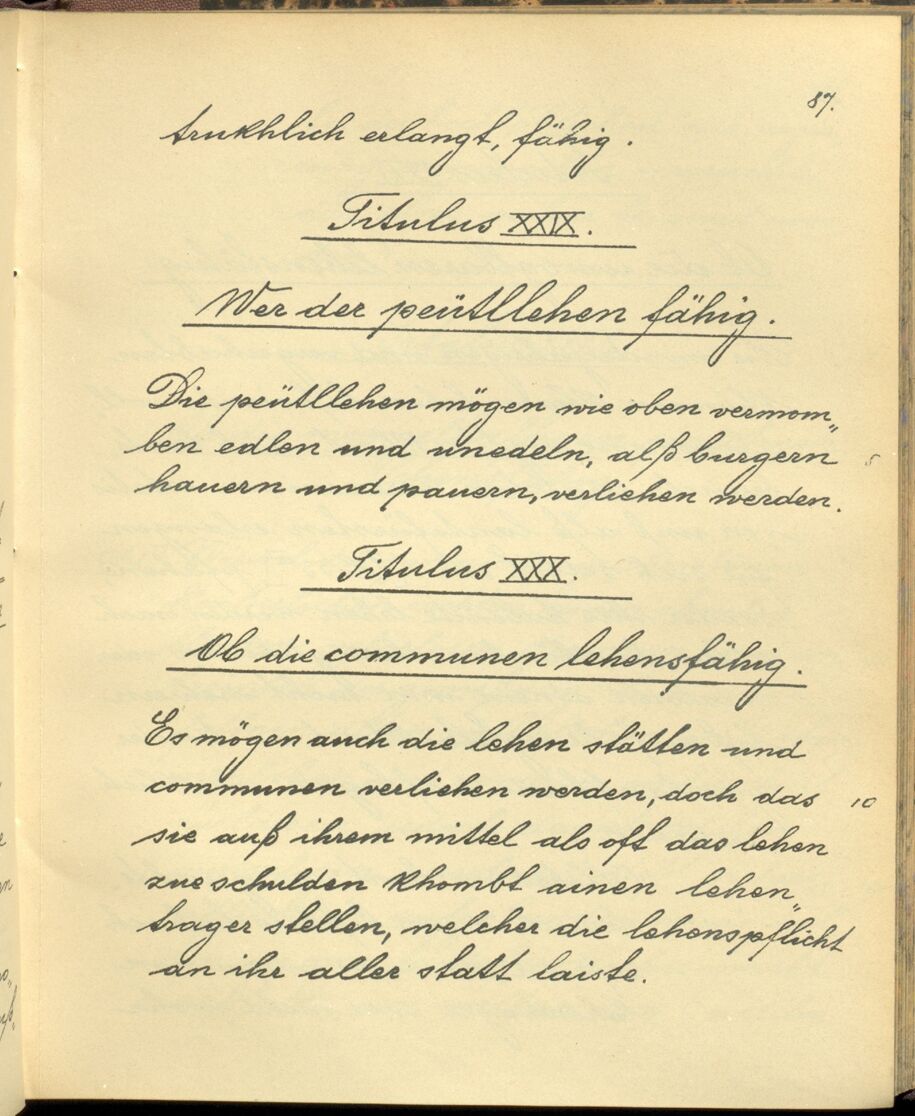 87.
trukhlich erlangt, fähig.
Titulus XXIX.
Wer der peütllehen fähig.
Die peütllehen mögen wie oben vermom„
ben edlen und unedeln, alß burgern 5
hauern und pauern, verliehen werden.
Titulus XXX.
Ob die communen lehensfähig.
Es mögen auch die lehen stätten und
communen verliehen werden, doch das 10
sie auß ihrem mittel als oft das lehen
zue schulden khombt ainen lehen„
trager stellen, welcher die lehenspflicht
an ihr aller statt laiste.